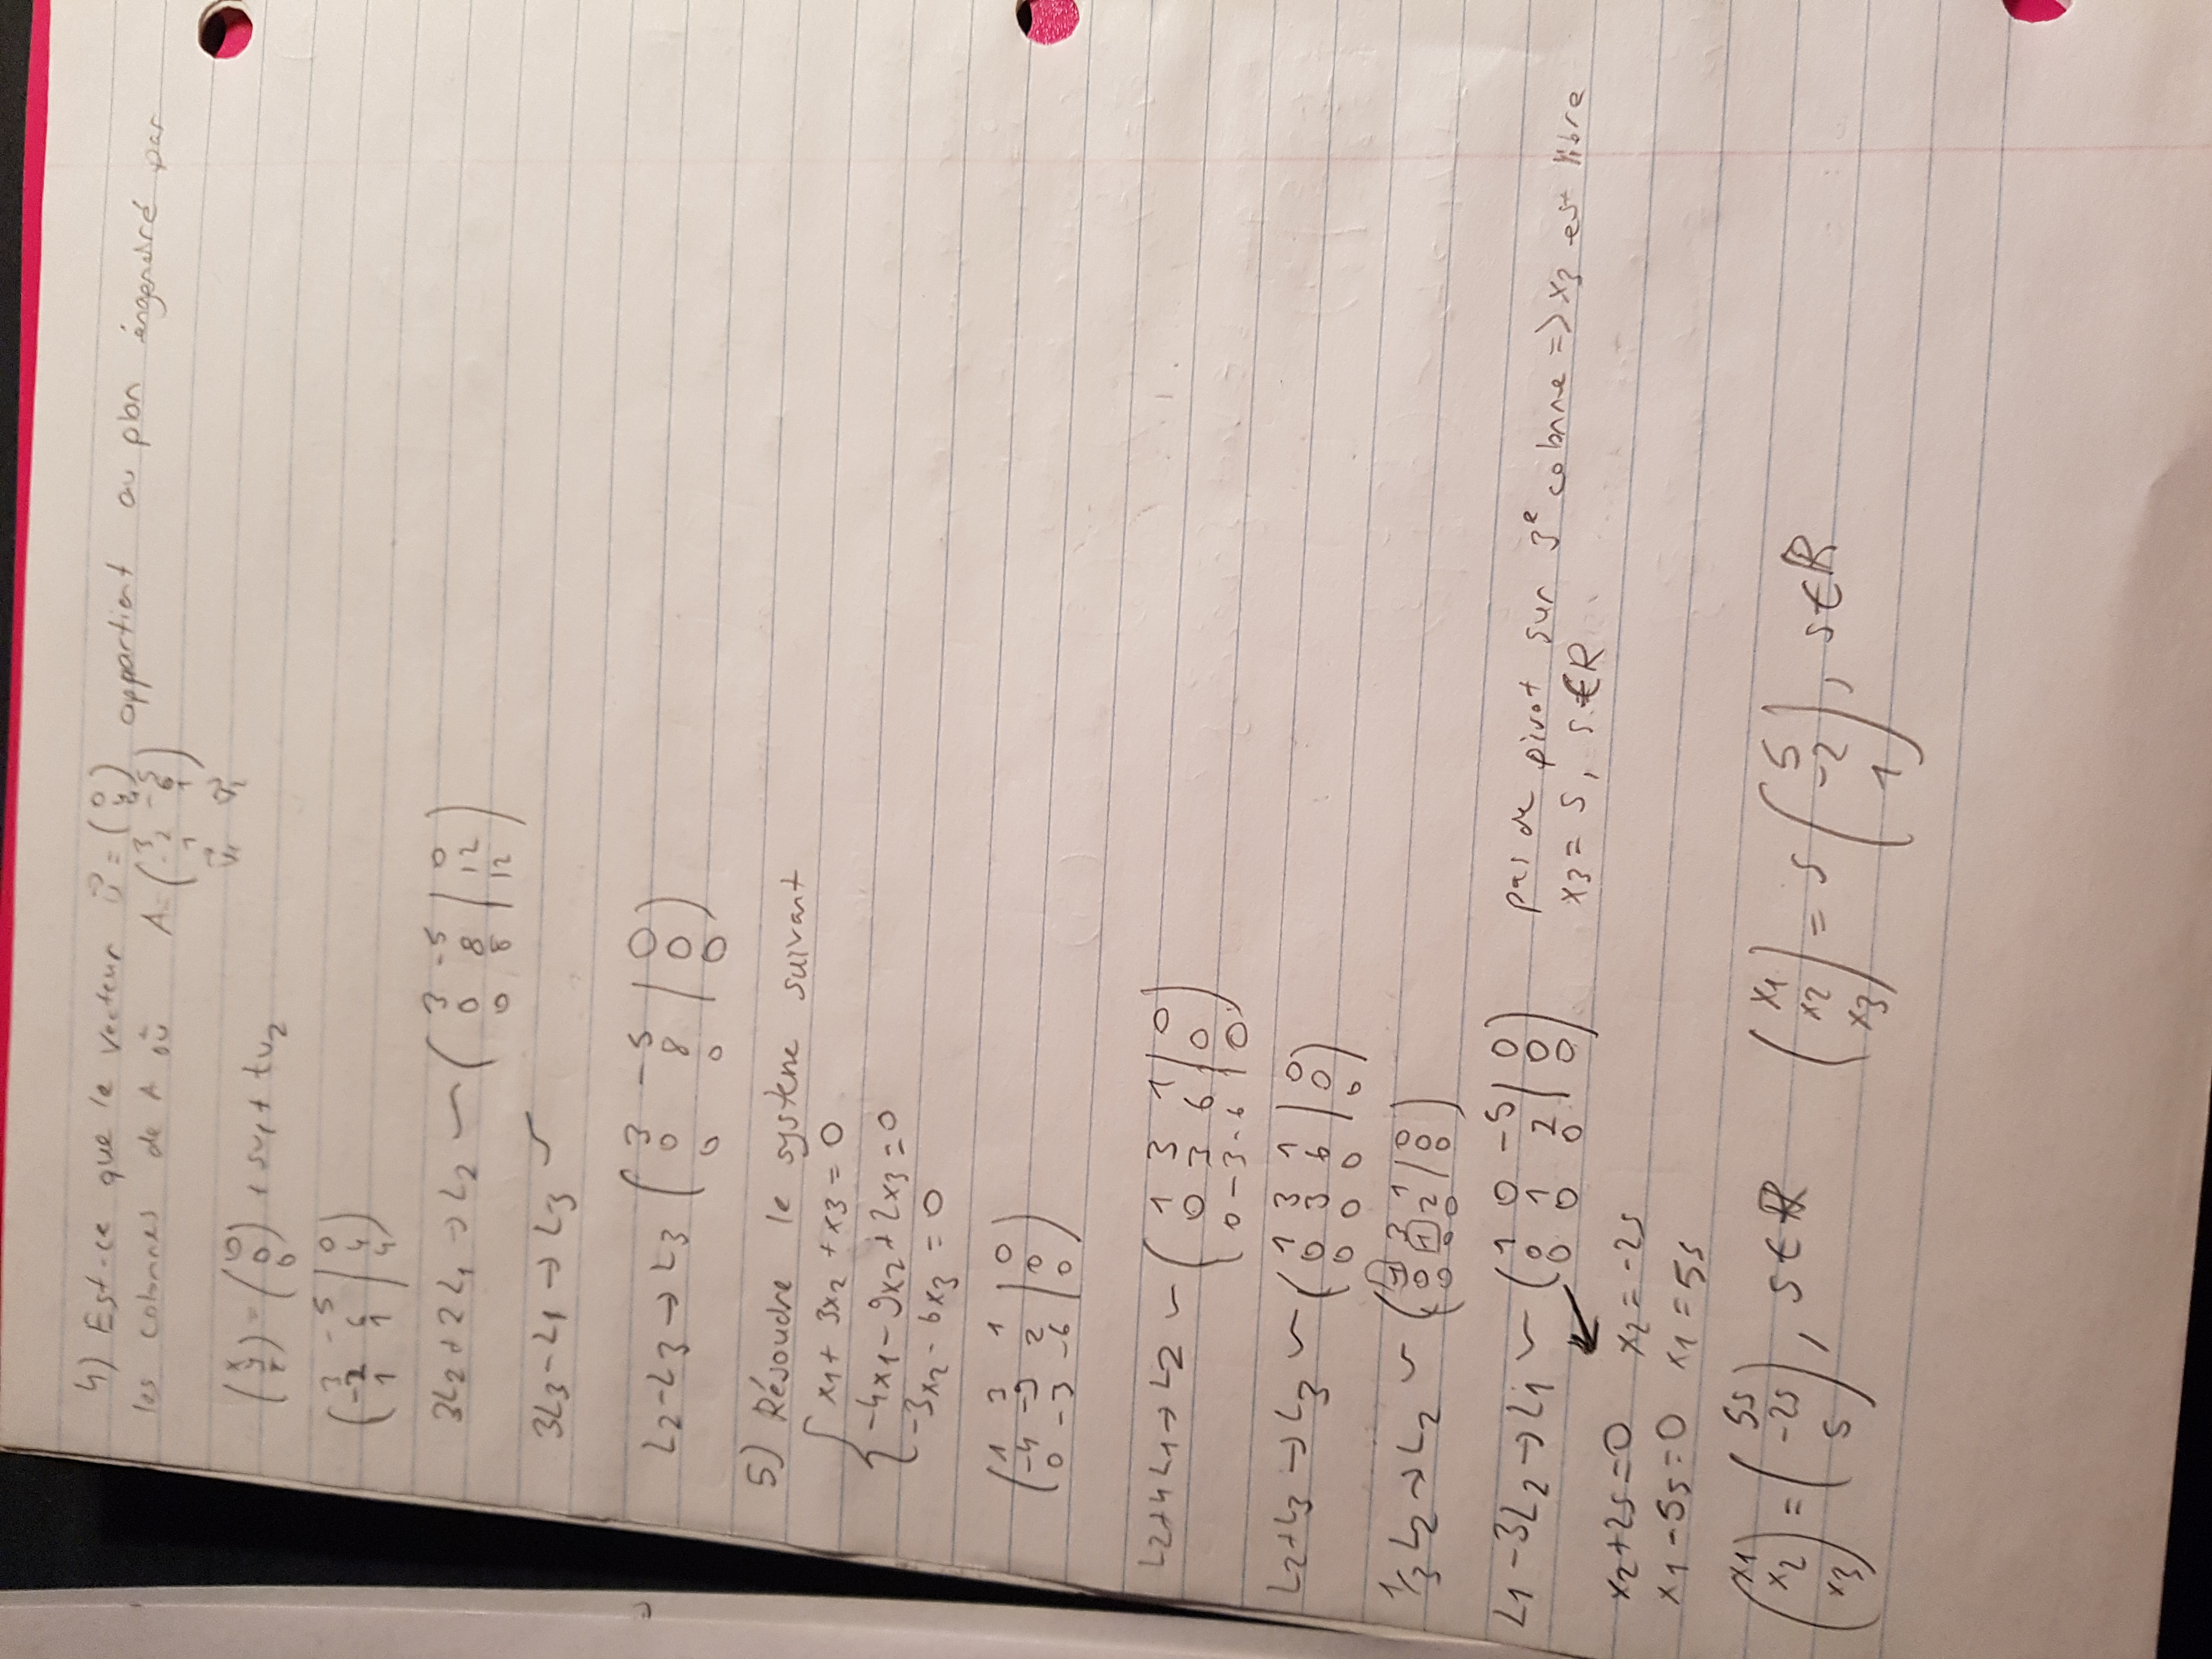 4) Est-ce que le vecteur u⃗ = (0 4 4) appartient au plan éngendré par
les colonnes de A où A = (3 -5 / -2 6 / 1 1)
v⃗1 v⃗2
(x y z) = (0 0 0) + sv1 + tv2
(3 -5 | 0
-2 6 | 4
1 1 | 4)
3L2+2L1 → L2 ~ (3 -5 | 0
0 8 | 12
0 8 | 12)
3L3-L1 → L3 ~
L2-L3 → L3 (3 -5 | 0
0 8 | 0
0 0 | 0)
5) Résoudre le systeme suivant
{ x1 + 3x2 + x3 = 0
-4x1 - 9x2 + 2x3 = 0
-3x2 - 6x3 = 0
(1 3 1 | 0
-4 -9 2 | 0
0 -3 -6 | 0)
L2+4L1 → L2 ~ (1 3 1 | 0
0 3 6 | 0
0 -3 -6 | 0)
L2+L3 → L3 ~ (1 3 1 | 0
0 3 6 | 0
0 0 0 | 0)
1/3 L2 → L2 ~ (1 3 1 | 0
0 1 2 | 0
0 0 0 | 0)
L1-3L2 → L1 ~ (1 0 -5 | 0
0 1 2 | 0
0 0 0 | 0)
pas de pivot sur 3e colonne => x3 est libre
x3 = s, s ∈ R
x2+2s=0 x2=-2s
x1-5s=0 x1=5s
(x1 x2 x3) = (5s -2s s), s ∈ R (x1 x2 x3) = s (5 -2 1), s ∈ R